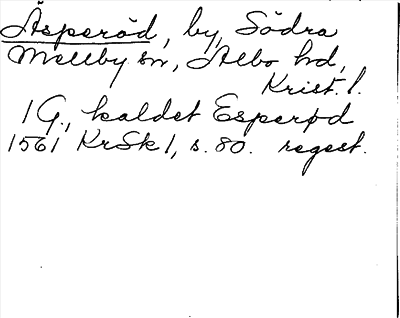 Äsperöd, by, Södra
Mellby sn, Albo hd,
Krist. l.
1 G., kaldet Esperød
1561 KrSk 1, s. 80. regest.